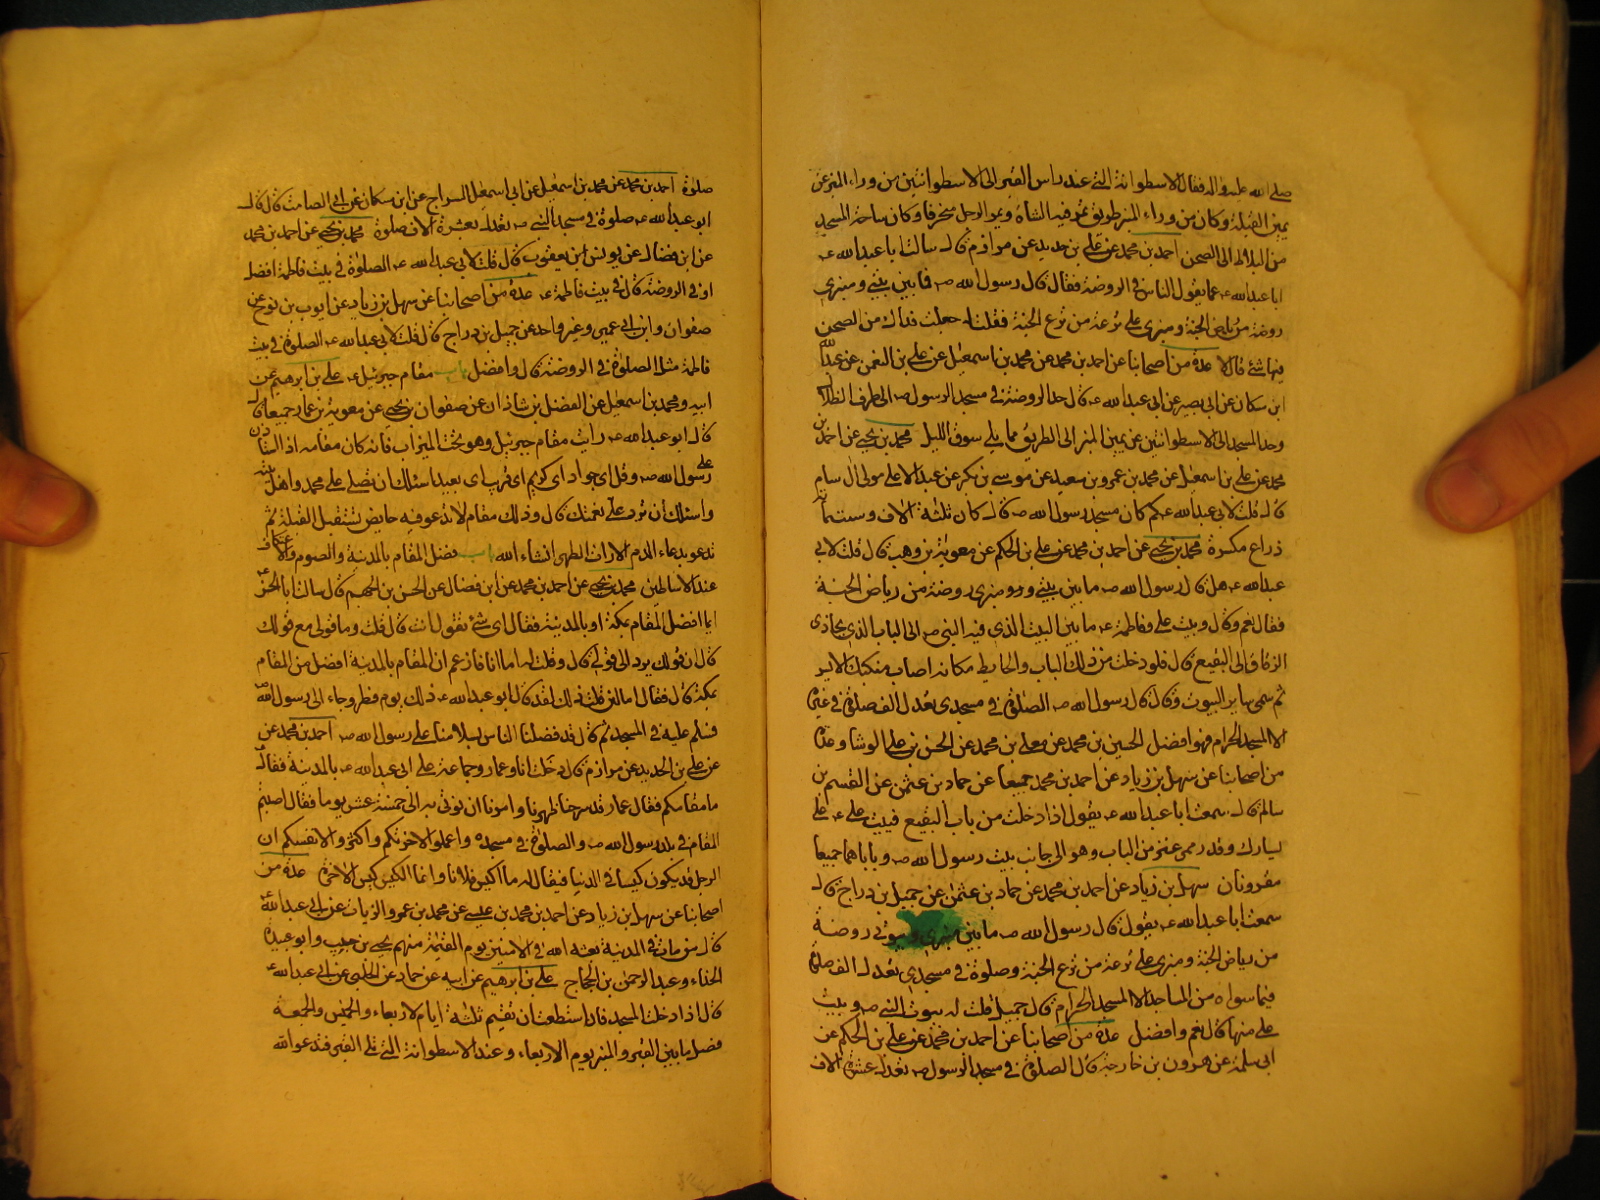 صلى الله عليه واله فقال الاسطوانة التي عند راس القبر الى الاسطوانتين من وراء المنبر عن
يمين القبلة وكان من وراء المنبر طريق تمر فيه الشاة ويمر الرجل منحرفا وكان ساحة المسجد
من البلاط الى الصحن احمد بن محمد عن علي بن حديد عن مرازم قال سالت ابا عبد الله ع
ابا عبد الله ع عما يقول الناس في الروضة فقال قال رسول الله ص فيما بين بيتي ومنبري
روضة من رياض الجنة ومنبري على ترعة من ترع الجنة فقلت له جعلت فداك من الصحن
فيها شئ قال لا عدة من اصحابنا عن احمد بن محمد عن محمد بن اسمعيل عن علي بن النعمن عن عبد الله
ابن مسكان عن ابي بصير عن ابي عبد الله ع قال حد الروضة في مسجد الرسول ص الى طرف الظلال
وحد المسجد الى الاسطوانتين عن يمين المنبر الى الطريق مما يلي سوق الليل محمد بن يحيى عن احمد بن
محمد عن علي بن اسمعيل عن محمد بن عمرو بن سعيد عن موسى بن بكر عن عبد الاعلى مولى ال سام
قال قلت لابي عبد الله ع كم كان مسجد رسول الله ص قال كان ثلثة الاف وستمائة
ذراع مكسرة محمد بن يحيى عن احمد بن محمد عن علي بن الحكم عن معوية بن وهب قال قلت لابي
عبد الله ع هل قال رسول الله ص ما بين بيتي ومنبري روضة من رياض الجنة
فقال نعم وقال وبيت علي وفاطمة ع ما بين البيت الذي فيه النبي ص الى الباب الذي يحاذى
الزقاق الى البقيع قال فلو دخلت من ذلك الباب والحايط مكانه اصاب منكبك الايسر
ثم سمى ساير البيوت وقال قال رسول الله ص الصلوة في مسجدي تعدل الف صلوة في غيره
الا المسجد الحرام فهو افضل الحسين بن محمد عن معلى بن محمد عن الحسن بن علي الوشا وعدة
من اصحابنا عن سهل بن زياد عن احمد بن محمد جميعا عن حماد بن عثمن عن القسم بن
سالم قال سمعت ابا عبد الله ع يقول اذا دخلت من باب البقيع فبيت علي ع على
يسارك وقدر ممر عنز من الباب وهو الى جانب بيت رسول الله ص وباباهما جميعا
مقرونان سهل بن زياد عن احمد بن محمد عن حماد بن عثمن عن جميل بن دراج قال
سمعت ابا عبد الله ع يقول قال رسول الله ص ما بين منبري وبيوتي روضة
من رياض الجنة ومنبري على ترعة من ترع الجنة وصلوة في مسجدي تعدل الف صلوة
فيما سواه من المساجد الا المسجد الحرام قال جميل قلت له بيوت النبي ص وبيت
علي منها قال نعم وافضل عدة من اصحابنا عن احمد بن محمد عن علي بن الحكم عن
ابي سلمة عن هرون بن خارجة قال الصلوة في مسجد الرسول ص تعدل عشرة الاف
صلوة احمد بن محمد عن محمد بن اسمعيل عن ابي اسمعيل السراج عن ابن مسكان عن ابي الصامت قال قال
ابو عبد الله ع صلوة في مسجد النبي ص تعدل بعشرة الاف صلوة محمد بن يحيى عن احمد بن محمد
عن ابن فضال عن يونس ابن يعقوب قال قلت لابي عبد الله ع الصلوة في بيت فاطمة افضل
او في الروضة قال في بيت فاطمة ع عدة من اصحابنا عن سهل بن زياد عن ايوب بن نوح عن
صفوان وابن ابي عمير وغير واحد عن جميل بن دراج قال قلت لابي عبد الله ع الصلوة في بيت
فاطمة مثل الصلوة في الروضة قال وافضل باب مقام جبرئيل ع علي بن ابرهيم عن
ابيه ومحمد بن اسمعيل عن الفضل بن شاذان عن صفوان بن يحيى عن معوية بن عمار جميعا قال
قال ابو عبد الله ع رايت مقام جبرئيل وهو تحت الميزاب فانه كان مقامه اذا استاذن
على رسول الله ص وقل اي جواد اي كريم اي قريب اي بعيد اسئلك ان تصلي على محمد واهل بيته
واسئلك ان ترد علي نعمتك قال وذلك مقام لا تدعو فيه حايض تستقبل القبلة ثم
تدعو بدعاء الدم الا رات الطهر انشاء الله باب فضل المقام بالمدينة والصوم والاعتكاف
عند الاساطين محمد بن يحيى عن احمد بن محمد عن ابن فضال عن الحسن بن الجهم قال سالت ابا الحسن ع
ايما افضل المقام بمكة او بالمدينة فقال اي شئ تقول انت قال قلت وما قولي مع قولك
قال ان قولك يرد الى قولي قال وقلت له اما انا فازعم ان المقام بالمدينة افضل من المقام
بمكة قال فقال اما لئن قلت ذلك لقد قال ابو عبد الله ع ذلك يوم فطر وجاء الى رسول الله ص
فسلم عليه في المسجد ثم قال قد فضلنا الناس بسلامنا على رسول الله ص احمد بن محمد عن
عن علي بن الحديد عن مرازم قال دخلت انا وعمار وجماعة على ابي عبد الله ع بالمدينة فقال
ما مقامكم فقال عمار قد سرحنا ظهرنا وامرنا ان نوتى به الى خمسة عشر يوما فقال اصبتم
المقام في بلد رسول الله ص والصلوة في مسجده واعملوا لاخرتكم واكثروا لانفسكم ان
الرجل قد يكون كيسا في الدنيا فيقال له ما اكيس فلانا وانما الكيس كيس الاخرة عدة من
اصحابنا عن سهل بن زياد عن احمد بن محمد بن عيسى عن محمد بن عمرو الزيات عن ابي عبد الله ع
قال من مات في المدينة بعثه الله في الامنين يوم القيمة منهم يحيى بن حبيب وابو عبيدة
الحذاء وعبد الرحمن بن الحجاج علي بن ابرهيم عن ابيه عن حماد عن الحلبي عن ابي عبد الله ع
قال اذا دخلت المسجد فان استطعت ان تقيم ثلثة ايام الاربعاء والخميس والجمعة
فصل ما بين القبر والمنبر يوم الاربعاء وعند الاسطوانة التي تلي القبر فتدعو الله